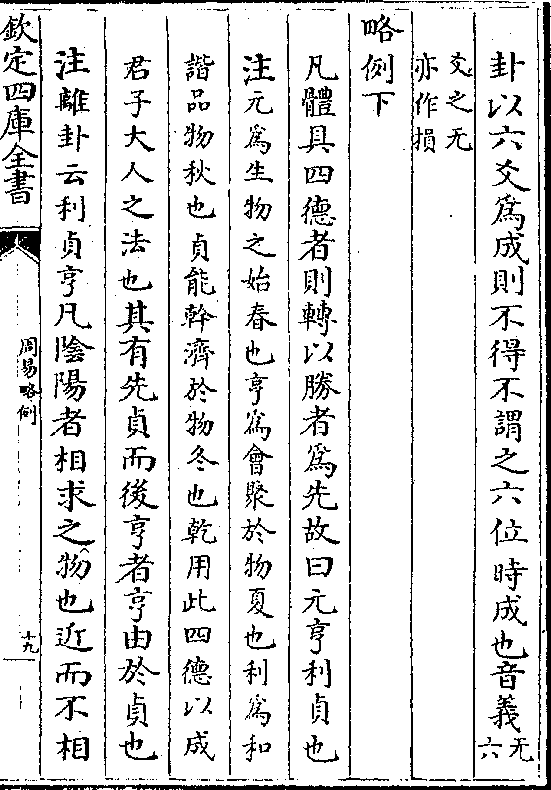 卦以六爻爲成則不得不謂之六位時成也音義无六
爻之无
亦作損
略例下
凡體具四德者則轉以勝者爲先故曰元亨利貞也
注元爲生物之始春也亨爲會聚於物夏也利爲和
諧品物秋也貞能幹濟於物冬也乾用此四德以成
君子大人之法也其有先貞而後亨者亨由於貞也
注離卦云利貞亨凡陰陽者相求之物也近而不相
欽定四庫全書
周易略例
十九